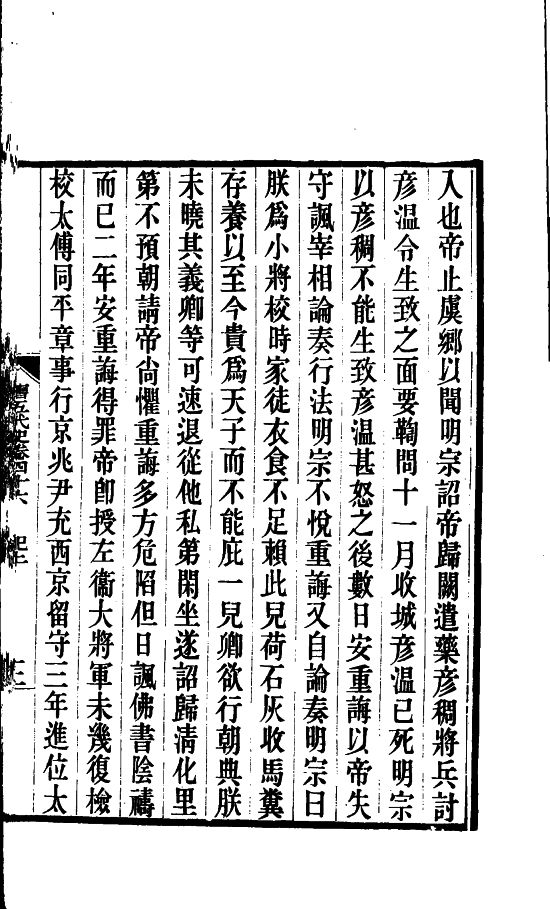 入也帝止虞鄉以聞明宗詔帝歸闕遣藥彥稠將兵討
彥溫令生致之面要鞫問十一月收城彥溫已死明宗
以彥稠不能生致彥溫甚怒之後數日安重誨以帝失
守諷宰相論奏行法明宗不悅重誨又自論奏明宗曰
朕爲小將校時家徒衣食不足賴此兒荷石灰收馬糞
存養以至今貴爲天子而不能庇一兒卿欲行朝典朕
未曉其義卿等可速退從他私第閑坐遂詔歸淸化里
第不預朝請帝尙懼重誨多方危陷但日諷佛書陰禱
而已二年安重誨得罪帝卽授左衞大將軍未幾復檢
校太傅同平章事行京兆尹充西京留守三年進位太
五代史卷四十六